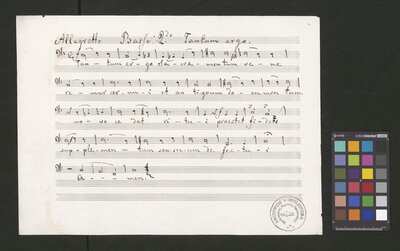 Allegretto Basso 2do Tantum ergo.
Tan - tum er - go sa - cra - men - tum ve - ne
re - mur cer - nu - i et an - ti quum do - cu men tum
no - vo ce dat ri - tu - i praestet fi - des
sup - ple - men - tum sen - su - um de - fec - tu - i
A - - men.